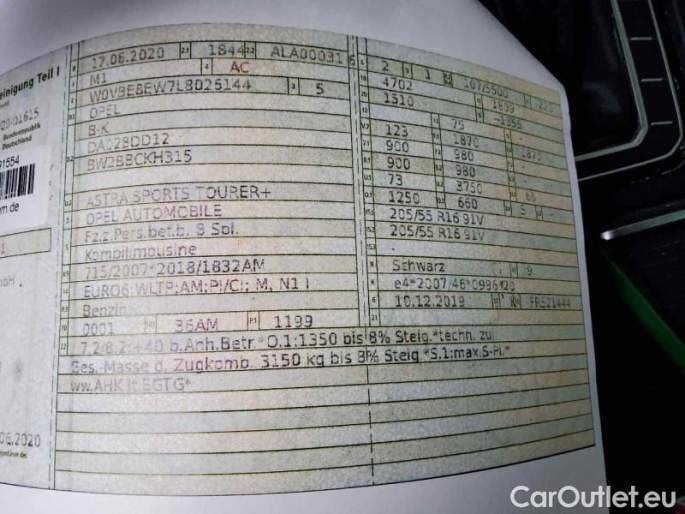 einigung Teil I
Bundesrepublik
Deutschland
17.06.2020 2.1 1844 2.2 ALA00031 6
M1 4 AC
W0VBE8EW7L8026144 3 5
OPEL
B-K
DA028DD12
BW2BBCKH315
ASTRA SPORTS TOURER+
OPEL AUTOMOBILE
Fz.z.Pers.bef.b. 8 Spl.
Kombilimousine
715/2007*2018/1832AM
EURO6;WLTP;AM;PI/CI; M, N1 I
Benzin
0001 36AM P.1 1199
2 1 107/5500
4702
1510 1899
123 75
900 1870 1870
900 980
73 980
1250 3750 65
660 5 -
205/55 R16 91V
205/55 R16 91V
-
Schwarz 9
e4*2007/46*0996*20
10.12.2019 FR521444
22 7.2/8.2:+40 b.Anh.Betr.*O.1:1350 bis 8% Steig.*techn. zul
Ges.-Masse d. Zugkomb. 3150 kg bis 8% Steig.*S.1:max.S-Pl.*
ww.AHK lt.EGTG*
06.2020
CarOutlet.eu